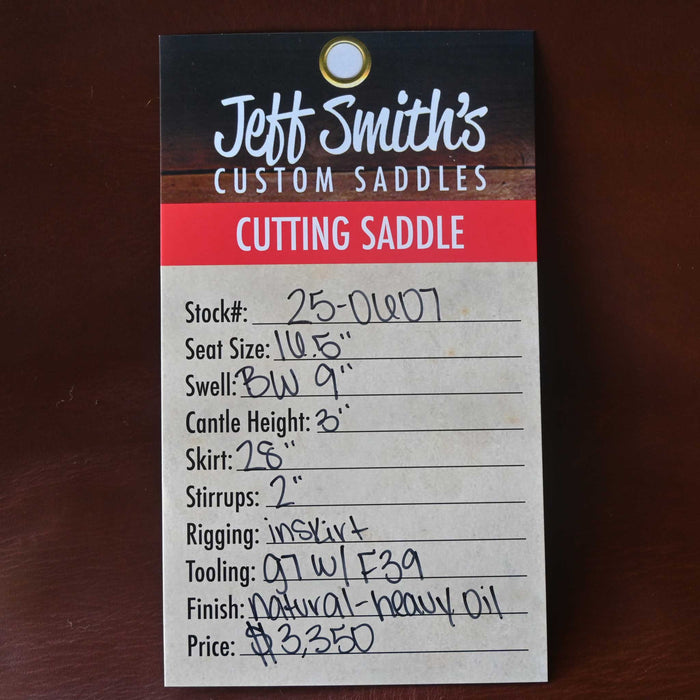 Jeff Smith's
CUSTOM SADDLES
CUTTING SADDLE
Stock#: 25-0607
Seat Size: 16.5"
Swell: BW 9"
Cantle Height: 3"
Skirt: 28"
Stirrups: 2"
Rigging: inskirt
Tooling: g7 w/ F39
Finish: natural-heavy oil
Price: $3,350